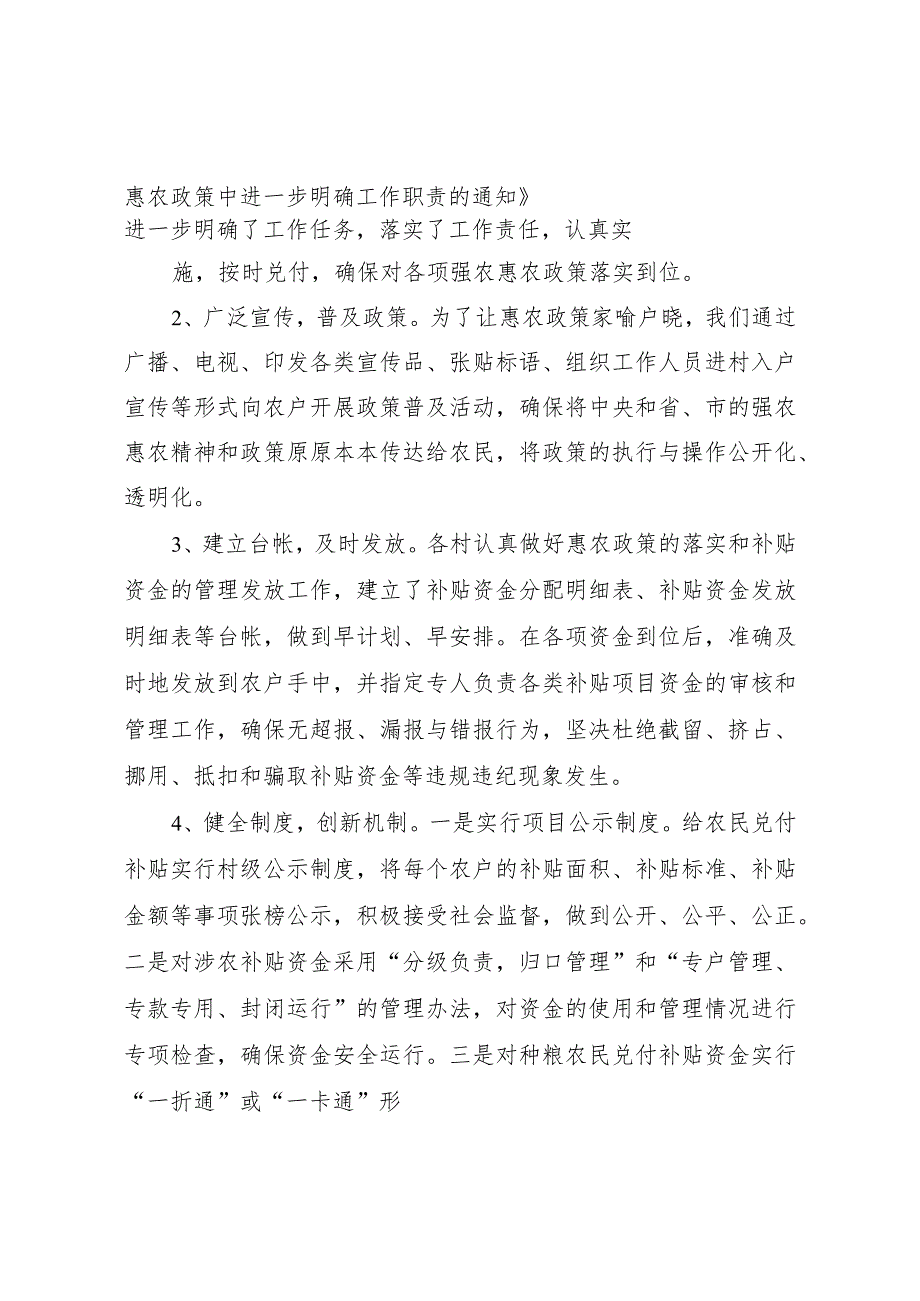 惠农政策中进一步明确工作职责的通知》
进一步明确了工作任务，落实了工作责任，认真实
施，按时兑付，确保对各项强农惠农政策落实到位。
2、广泛宣传，普及政策。为了让惠农政策家喻户晓，我们通过
广播、电视、印发各类宣传品、张贴标语、组织工作人员进村入户
宣传等形式向农户开展政策普及活动，确保将中央和省、市的强农
惠农精神和政策原原本本传达给农民，将政策的执行与操作公开化、
透明化。
3、建立台帐，及时发放。各村认真做好惠农政策的落实和补贴
资金的管理发放工作，建立了补贴资金分配明细表、补贴资金发放
明细表等台帐，做到早计划、早安排。在各项资金到位后，准确及
时地发放到农户手中，并指定专人负责各类补贴项目资金的审核和
管理工作，确保无超报、漏报与错报行为，坚决杜绝截留、挤占、
挪用、抵扣和骗取补贴资金等违规违纪现象发生。
4、健全制度，创新机制。一是实行项目公示制度。给农民兑付
补贴实行村级公示制度，将每个农户的补贴面积、补贴标准、补贴
金额等事项张榜公示，积极接受社会监督，做到公开、公平、公正。
二是对涉农补贴资金采用“分级负责，归口管理”和“专户管理、
专款专用、封闭运行”的管理办法，对资金的使用和管理情况进行
专项检查，确保资金安全运行。三是对种粮农民兑付补贴资金实行
“一折通”或“一卡通”形